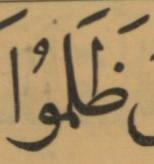 ظَلَمُوا